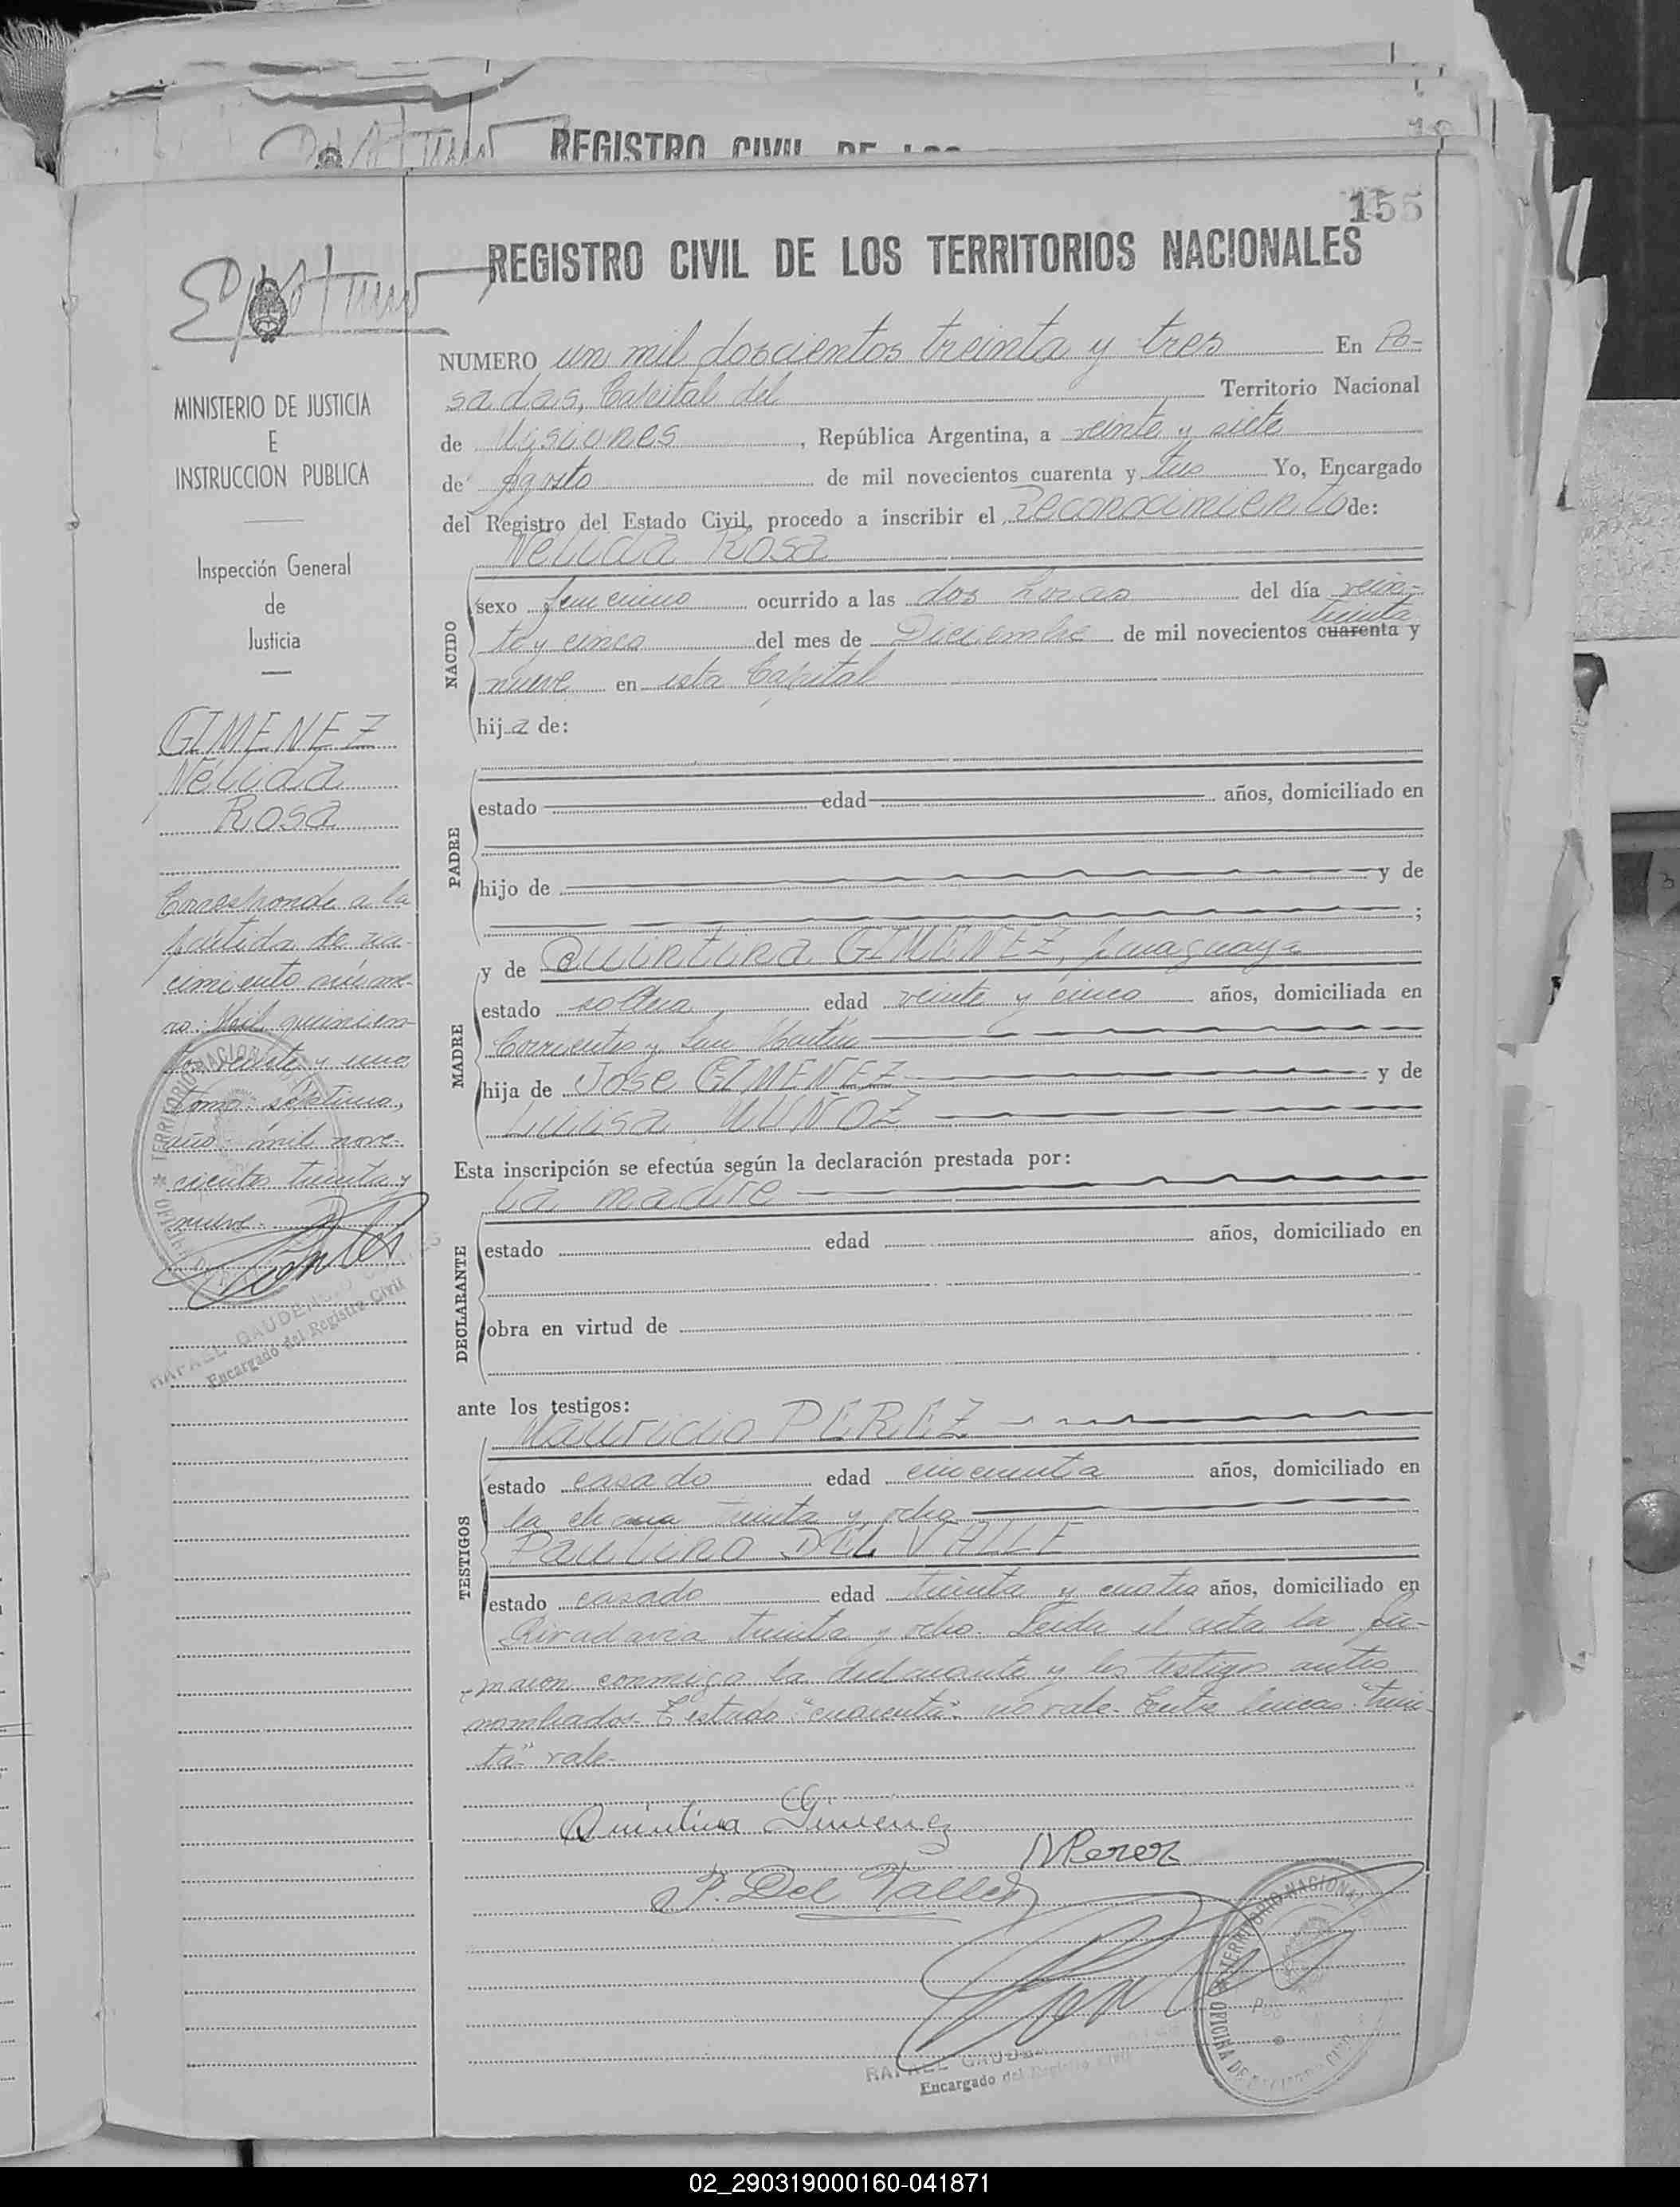 REGISTRO CIVIL DE LOS
155
REGISTRO CIVIL DE LOS TERRITORIOS NACIONALES
MINISTERIO DE JUSTICIA
E
INSTRUCCION PUBLICA
Inspección General
de
Justicia
GIMENEZ
Nélida
Rosa
Corresponde a la
partida de na-
cimiento núme-
ro: Mil quinien-
tos veinte y uno
tomo séptimo,
año: mil nove-
cientos treinta y
nueve.
RAFAEL GAUDENCIO
Encargado del Registro Civil
NUMERO un mil doscientos treinta y tres En Po-
sadas, Capital del Territorio Nacional
de Misiones, República Argentina, a veinte y siete
de Agosto de mil novecientos cuarenta y tres Yo, Encargado
del Registro del Estado Civil, procedo a inscribir el Reconocimiento de:
Nélida Rosa
NACIDO
sexo femenino ocurrido a las dos horas del día vein-
treinta
te y cinco del mes de Diciembre de mil novecientos cuarenta y
nueve en esta Capital
hija de:
PADRE
estado edad años, domiciliado en
hijo de y de
;
MADRE
y de Quintina GIMENEZ, paraguaya
estado soltera edad veinte y cinco años, domiciliada en
Corrientes y San Martín
hija de José GIMENEZ y de
Luisa MUÑOZ
Esta inscripción se efectúa según la declaración prestada por:
la madre
DECLARANTE
estado edad años, domiciliado en
obra en virtud de
ante los testigos:
TESTIGOS
Mauricio PEREZ
estado casado edad cincuenta años, domiciliado en
la chacra treinta y ocho
Paulino DEL VALLE
estado casado edad treinta y cuatro años, domiciliado en
Rivadavia treinta y ocho. Leida el acta la fir-
maron conmigo la declarante y los testigos antes
nombrados. Testado "cuarenta" no vale. Entre lineas: "trein-
ta" vale.
Quintina Gimenez
M Perez
P. Del Valle
RAFAEL GAUDENCIO
Encargado del Registro Civil
02_290319000160-041871